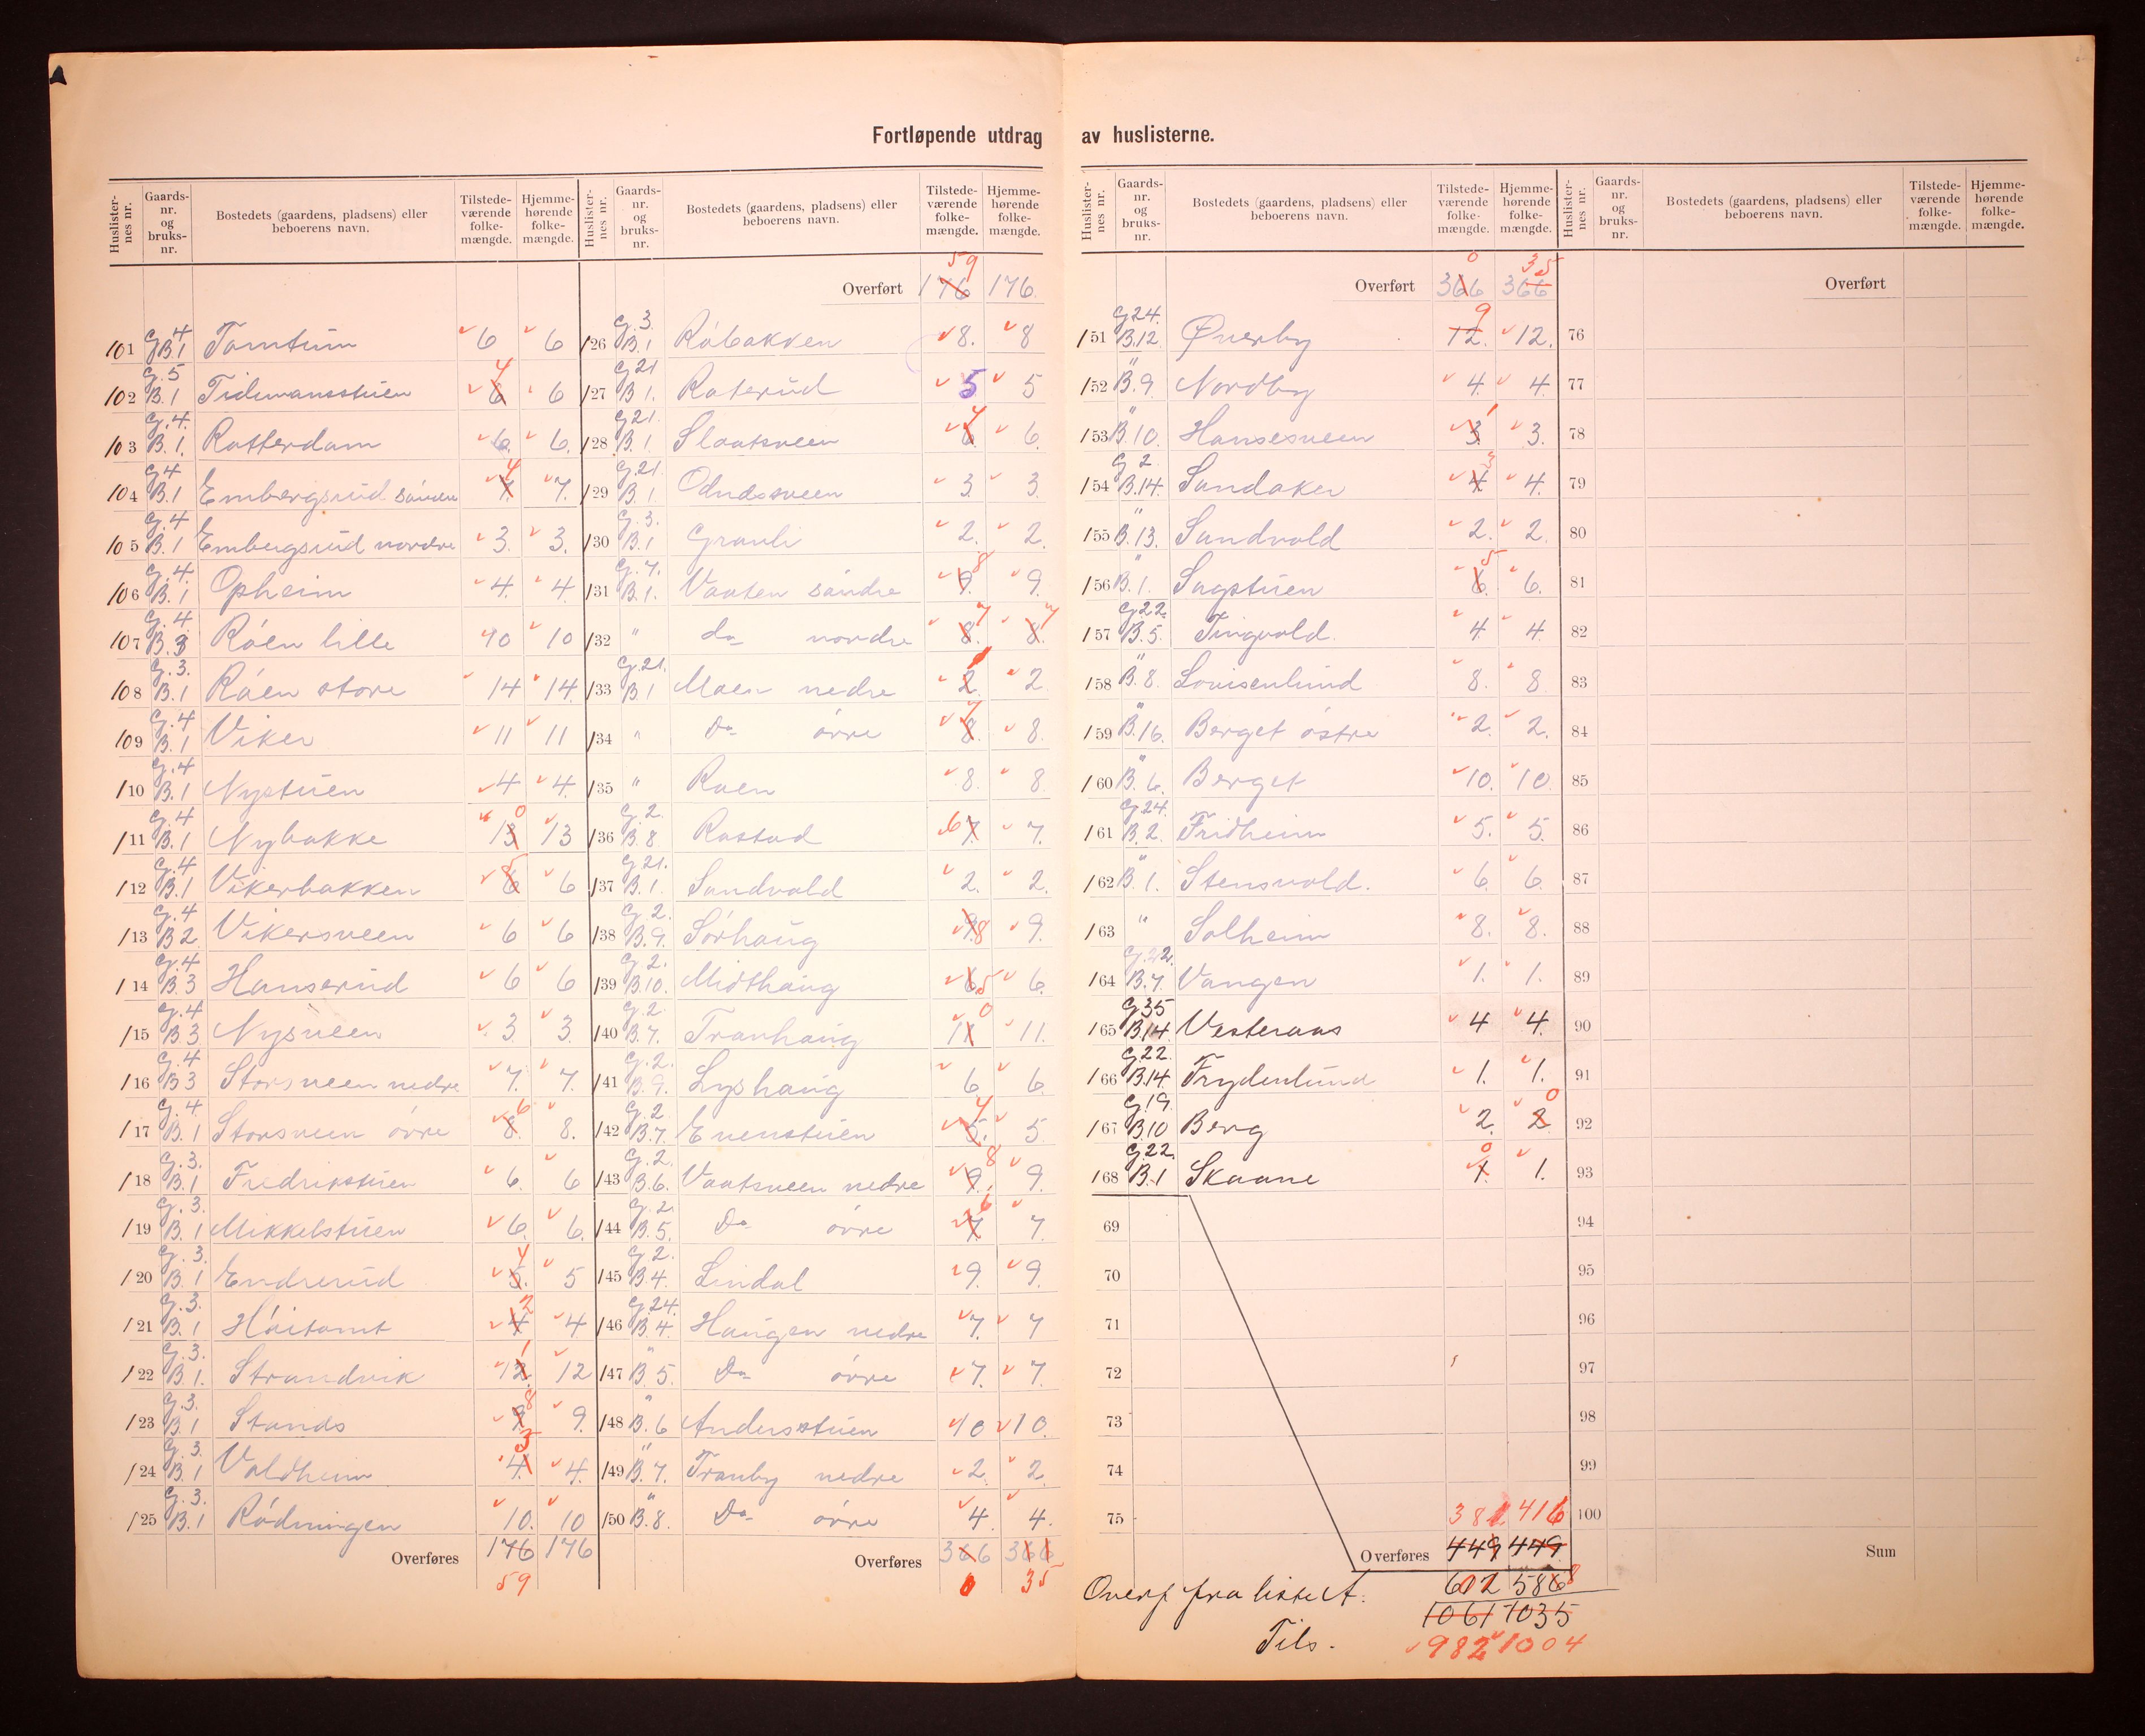 Fortløpende utdrag av huslisterne.
Huslister-nes nr. | Gaards-nr. og bruks-nr. | Bostedets (gaardens, pladsens) eller beboerens navn. | Tilstede-værende folke-mængde. | Hjemme-hørende folke-mængde.
101 G.4 B.1 Tomtum 6 6
102 G.5 B.1 Tidemansstuen 6 4 6
103 G.4. B.1. Rotterdam 6. 6.
104 G.4 B.1 Embergsrud søndre 7. 4 7.
105 G.4 B.1 Embergsrud nordre 3. 3.
106 G.4. B.1 Opheim 4. 4.
107 G.4 B.3 Röen lille 10 10
108 G.3. B.1 Röen store 14 14.
109 G.4 B.1 Viker 11 11
110 G.4 B.1 Nystuen 4 4.
111 G.4 B.1 Nybakke 13 0 13
112 G.4 B.1 Vikerbakken 6 5 6
113 G.4 B.2 Vikersveen 6 6
114 G.4 B.3 Hanserud 6 6
115 G.4 B.3 Nysveen 3. 3.
116 G.4 B.3 Storsveen nedre 7. 7.
117 G.4. B.1 Storsveen övre 8. 6 8.
118 G.3. B.1 Fredrikstuen 6. 6
119 G.3. B.1 Mikkelstuen 6. 6.
120 G.3. B.1 Endrerud 5. 4 5
121 G.3. B.1 Höitomt 4 2 4
122 G.3. B.1. Strandvik 12 1 12
123 G.3. B.1 Stands 9 8 9.
124 G.3. B.1 Valdheim 4. 3 4.
125 G.3. B.1 Rödningen 10. 10
Overføres 176 176
59
Overført 176 59 176.
126 G.3. B.1 Röbakken 8. 8
127 G.21 B.1. Roterud 5 5
128 G.21. B.1. Slaatsveen 6. 4 6.
129 G.21. B.1 Odndssveen 3. 3.
130 G.3. B.1 Granli 2. 2.
131 G.7. B.1. Vaaten söndre 9. 8 9.
132 " do nordre 8. 7 8. 7
133 G.21. B.1 Moen nedre 2 1 2
134 " Do övre 8. 7 8.
135 " Roen 8. 8.
136 G.2. B.8. Rostad 7. 6 7.
137 G.21. B.1. Sandvold 2. 2.
138 G.2. B.9. Sörhaug 9. 8 9.
139 G.2. B.10. Midthaug 6 5 6.
140 G.2. B.7. Tranhaug 11 0 11.
141 G.2. B.9. Lyshaug 6. 6.
142 G.2. B.7. Evenstuen 5. 4 5
143 G.2. B.6. Vaatsveen nedre 9. 8 9.
144 G.2. B.5. Do övre 7. 6 7.
145 G.2. B.4. Lindal 9. 9.
146 G.24. B.4. Haugen nedre 7. 7
147 " B.5. Do övre 7. 7.
148 " B.6 Andersstuen 10 10.
149 " B.7. Tranby nedre 2. 2.
150 " B.8. Do övre 4. 4.
Overføres 366 366
0 35
Overført 366 0 366 35
151 G.24. B.12. Överby 12. 9 12.
152 " B.9. Nordby 4. 4.
153 " B.10. Hansesveen 3. 1 3.
154 G.2. B.14. Sandaker 4 3 4.
155 " B.13. Sandvold 2. 2.
156 " B.1. Sagstuen 6. 5 6.
157 G.22. B.5. Tingvold. 4. 4.
158 " B.8. Lovisenlund 8. 8.
159 " B.16. Berget östre 2. 2.
160 " B.6. Berget 10. 10.
161 G.24. B.2. Fridheim 5. 5.
162 " B.1. Stensvold. 6. 6.
163 " Solheim 8. 8.
164 G.22. B.7. Vangen 1. 1.
165 G.35 B.14. Vesteraas 4 4.
166 G.22. B.14. Frydenlund 1. 1.
167 G.19. B.10 Berg 2. 2. 0
168 G.22. B.1 Skaane 1. 0 1.
69
70
71
72
73
74
75 381. 416
Overføres 449 449
Overf fra liste A. 601 586 8
1061 1035
Tils. 982 1004
Overført
76
77
78
79
80
81
82
83
84
85
86
87
88
89
90
91
92
93
94
95
96
97
98
99
100
Sum